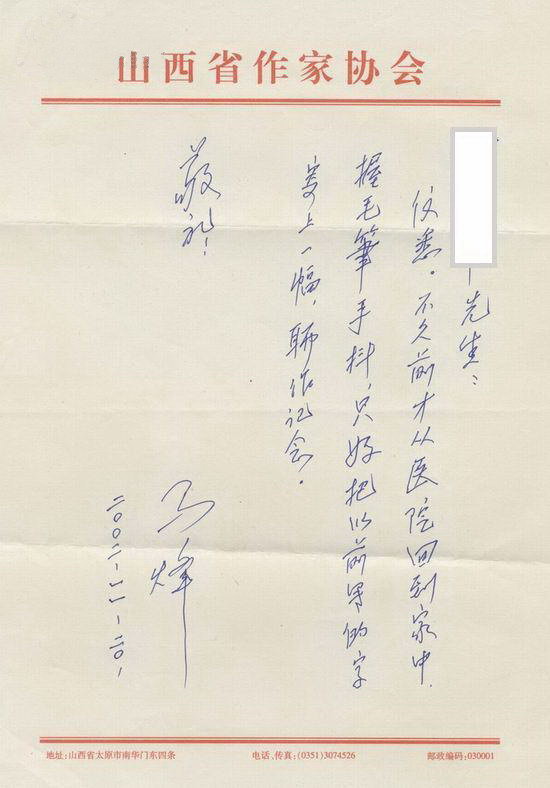 山西省作家协会
先生：
仪悉。不久前才从医院回到家中.
握毛筆手抖，只好把以前写的字
寄上一幅，聊作记念.
敬礼!
马烽
二〇〇二·十一·二〇·
地址:山西省太原市南华门东四条
电话、传真:(0351)3074526
邮政编码:030001